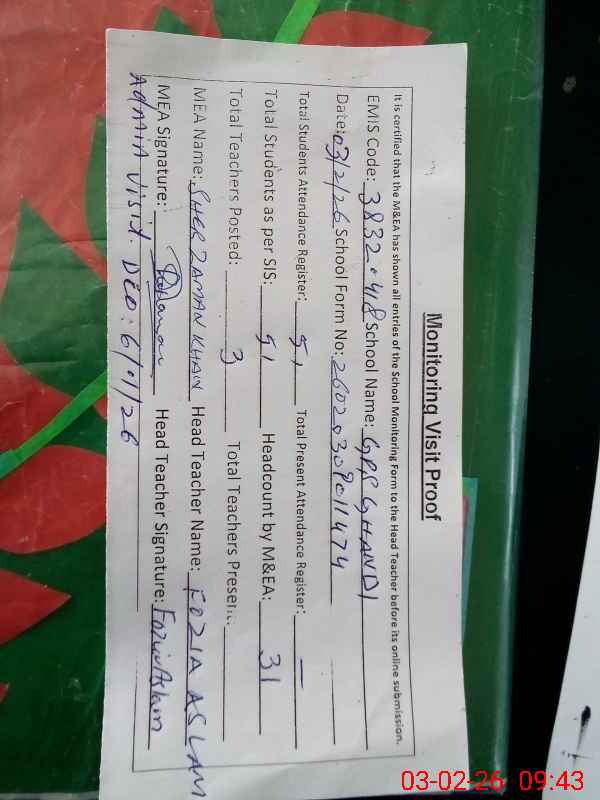 Monitoring Visit Proof
It is certified that the M&EA has shown all entries of the School Monitoring Form to the Head Teacher before its online submission.
EMIS Code: 3832.418 School Name: GPS GHANDI
Date: 03/2/26 School Form No: 260203091011474
Total Students Attendance Register: 51 Total Present Attendance Register: —
Total Students as per SIS: 51 Headcount by M&EA: 31
Total Teachers Posted: 3 Total Teachers Present:
MEA Name: SHER ZAMAN KHAN Head Teacher Name: FOZIA ASLAM
MEA Signature: Head Teacher Signature: Fozia Aslam
Admin Visit. DEO: 6/01/26
03-02-26 09:43